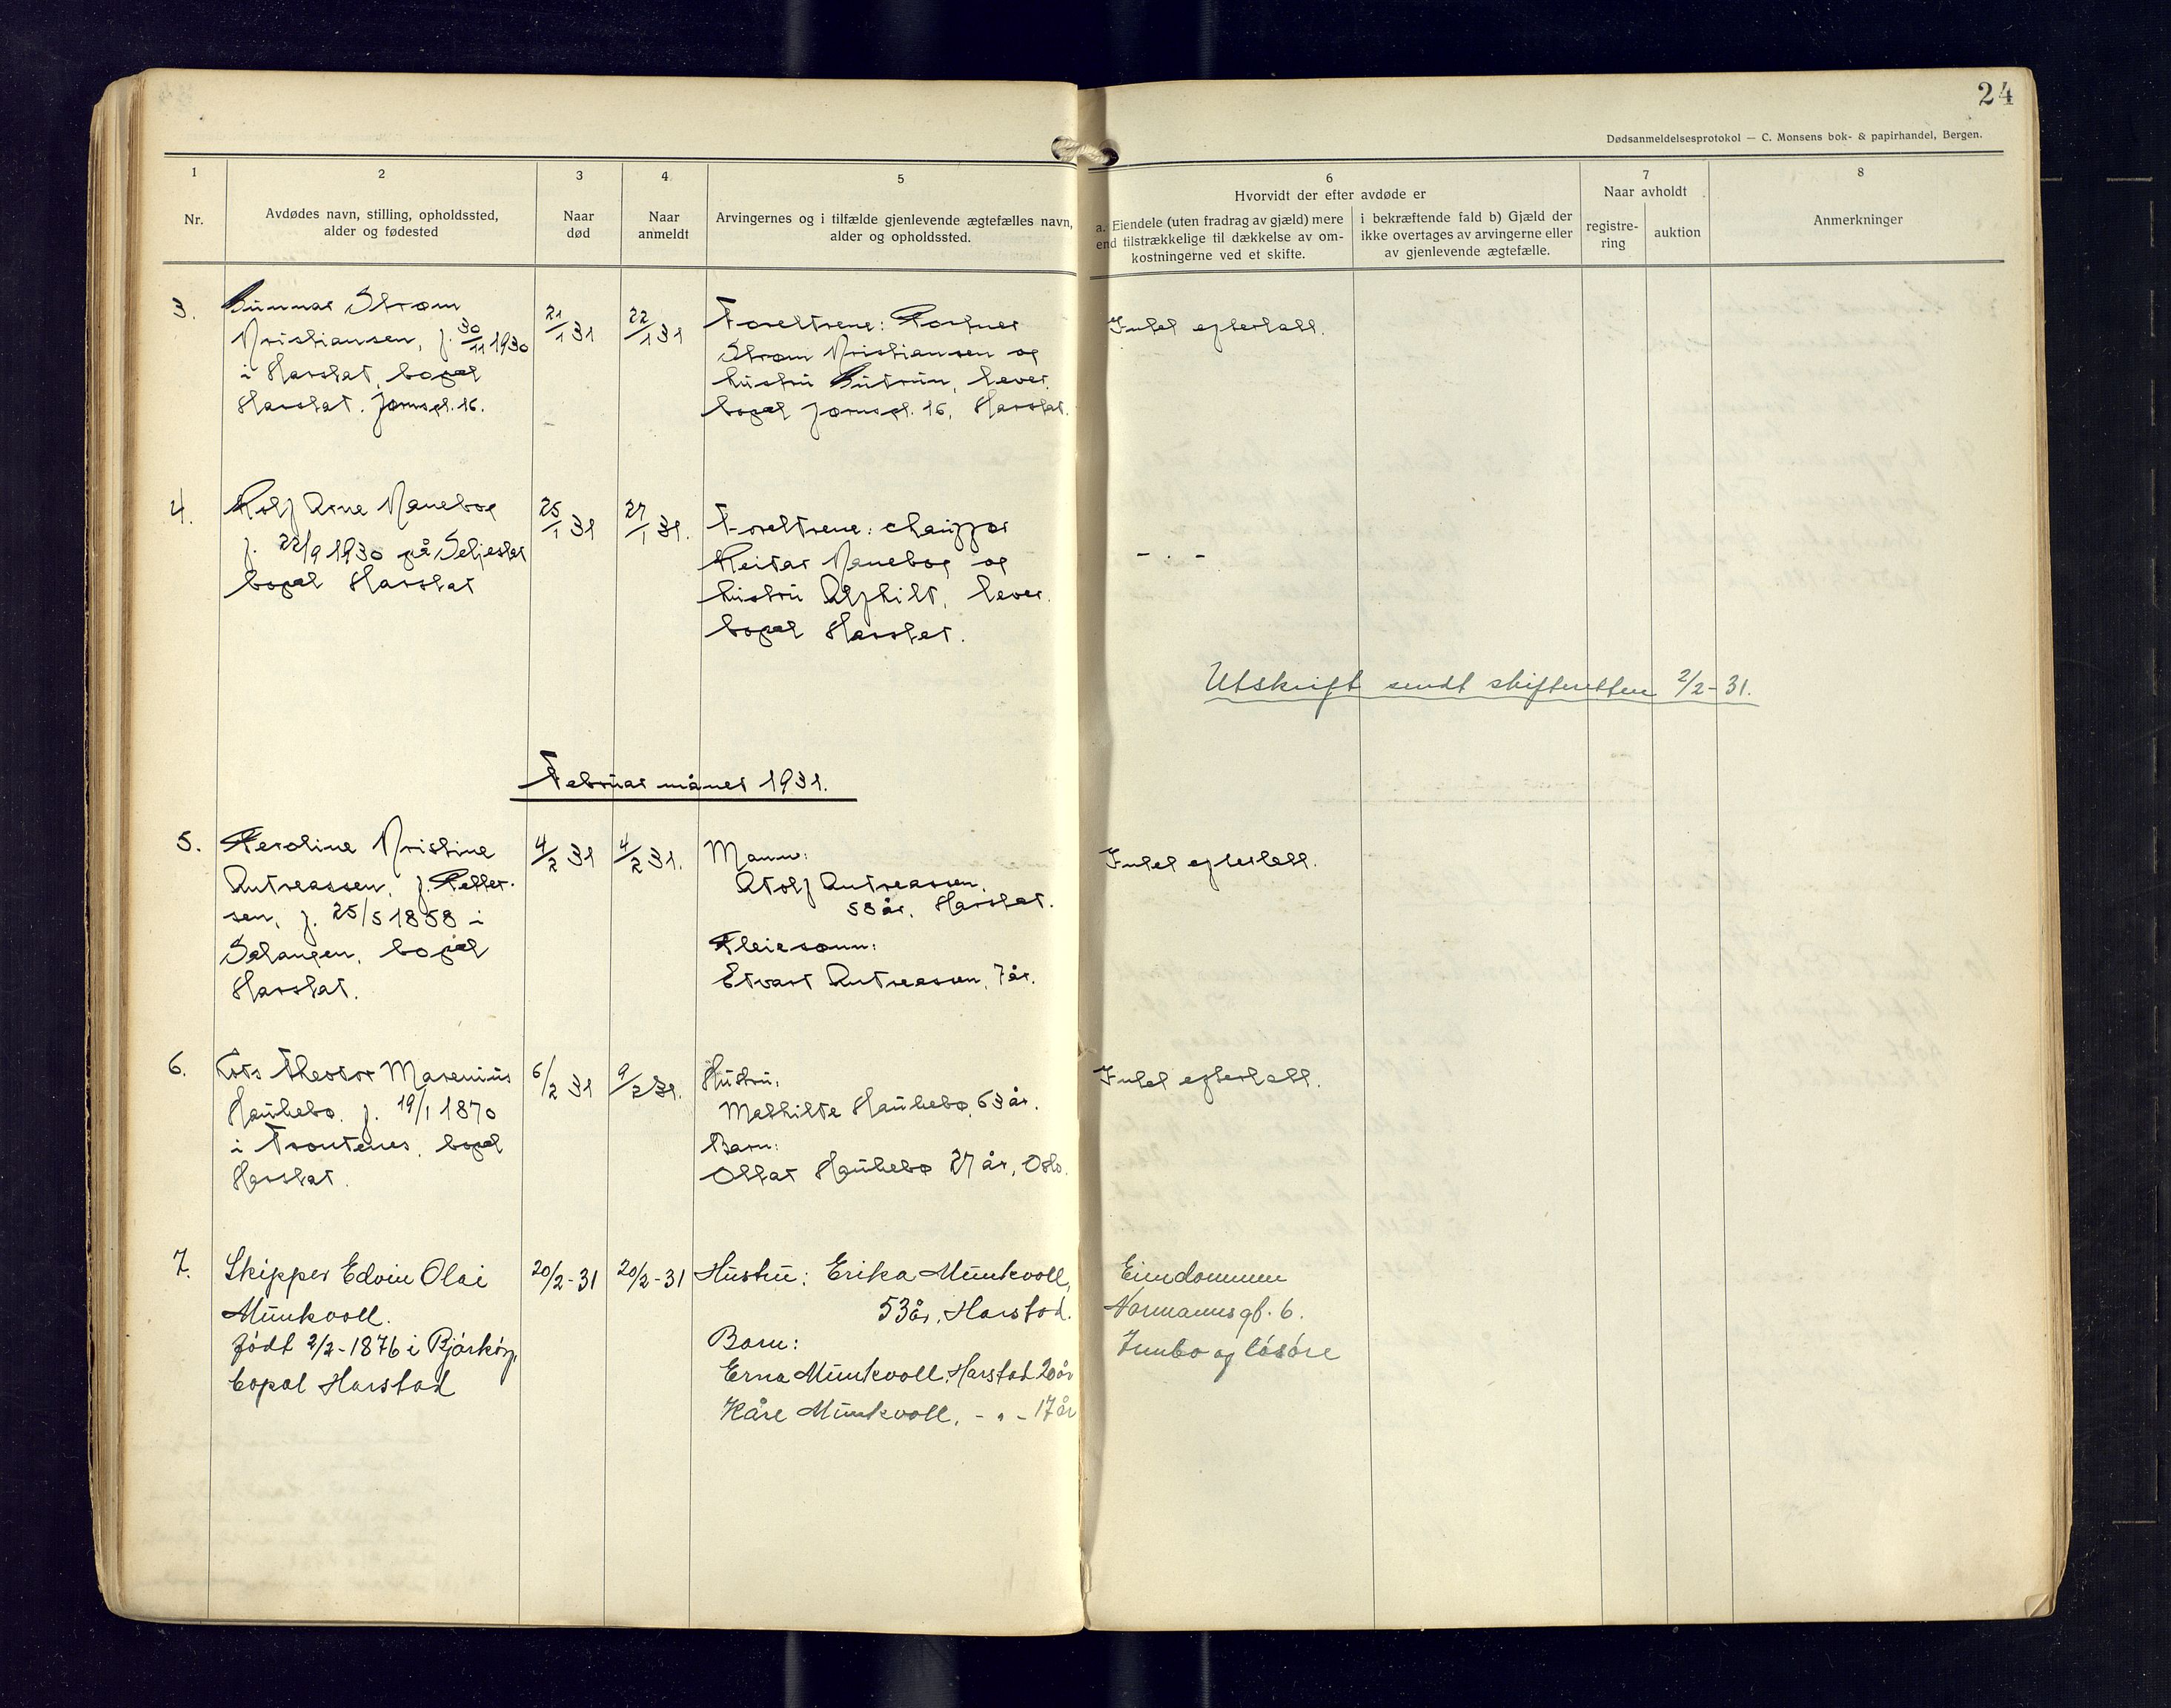 24
Dødsanmeldelsesprotokol — C. Monsens bok- & papirhandel, Bergen.
1
Nr.
2
Avdødes navn, stilling, opholdssted,
alder og fødested
3
Naar
død
4
Naar
anmeldt
5
Arvingernes og i tilfælde gjenlevende ægtefælles navn,
alder og opholdssted.
6
Hvorvidt der efter avdøde er
a. Eiendele (uten fradrag av gjæld) mere
end tilstrækkelige til dækkelse av om-
kostningerne ved et skifte.
i bekræftende fald b) Gjæld der
ikke overtages av arvingerne eller
av gjenlevende ægtefælle.
7
Naar avholdt
registre-
ring
auktion
8
Anmerkninger
3.
Gunnar Strøm
Kristiansen, f. 30/11 1930
i Harstad, bopæl
Harstad.
16.
21/1 31
22/1 31
Foreldrene:
Strøm Kristiansen og
hustru Gudrun, lever,
bopæl
16, Harstad.
Intet efterlatt.
4.
Rolf Arne Kanebog
f. 22/9 1930 på Seljestad
bopæl Harstad
25/1 31
27/1 31.
Foreldrene: chauffør
Reidar Kanebog og
hustru Alfhild, lever.
bopæl Harstad.
- . -
Utskrift sendt skifteretten 2/2-31.
Februar måned 1931.
5.
Kristine
Andreassen, f. Petter-
sen, f. 25/5 1858 i
Salangen, bopæl
Harstad.
4/2 31
4/2 31.
Mann:
Adolf Andreassen,
58 år, Harstad.
Pleiesønn:
Edvart Andreassen, 7 år.
Intet efterlatt.
6.
Theodor Marenius
Haukebø. f. 19/1 1870
i Trondenes, bopæl
Harstad.
6/2 31
9/2 31.
Hustru:
Mathilde Haukebø, 63 år.
Barn:
Haukebø 27 år, Oslo.
Intet efterlatt.
7.
Skipper Edvin Olai
Munkvoll.
født 2/2-1876 i Bjarkøy,
bopæl Harstad
20/2-31
20/2-31
Hustru: Erika Munkvoll,
53 år, Harstad.
Barn:
Erna Munkvoll, Harstad 20 år
Kåre Munkvoll, - " - 17 år
Eiendommen
Normannsgt. 6.
Innbo og løsøre